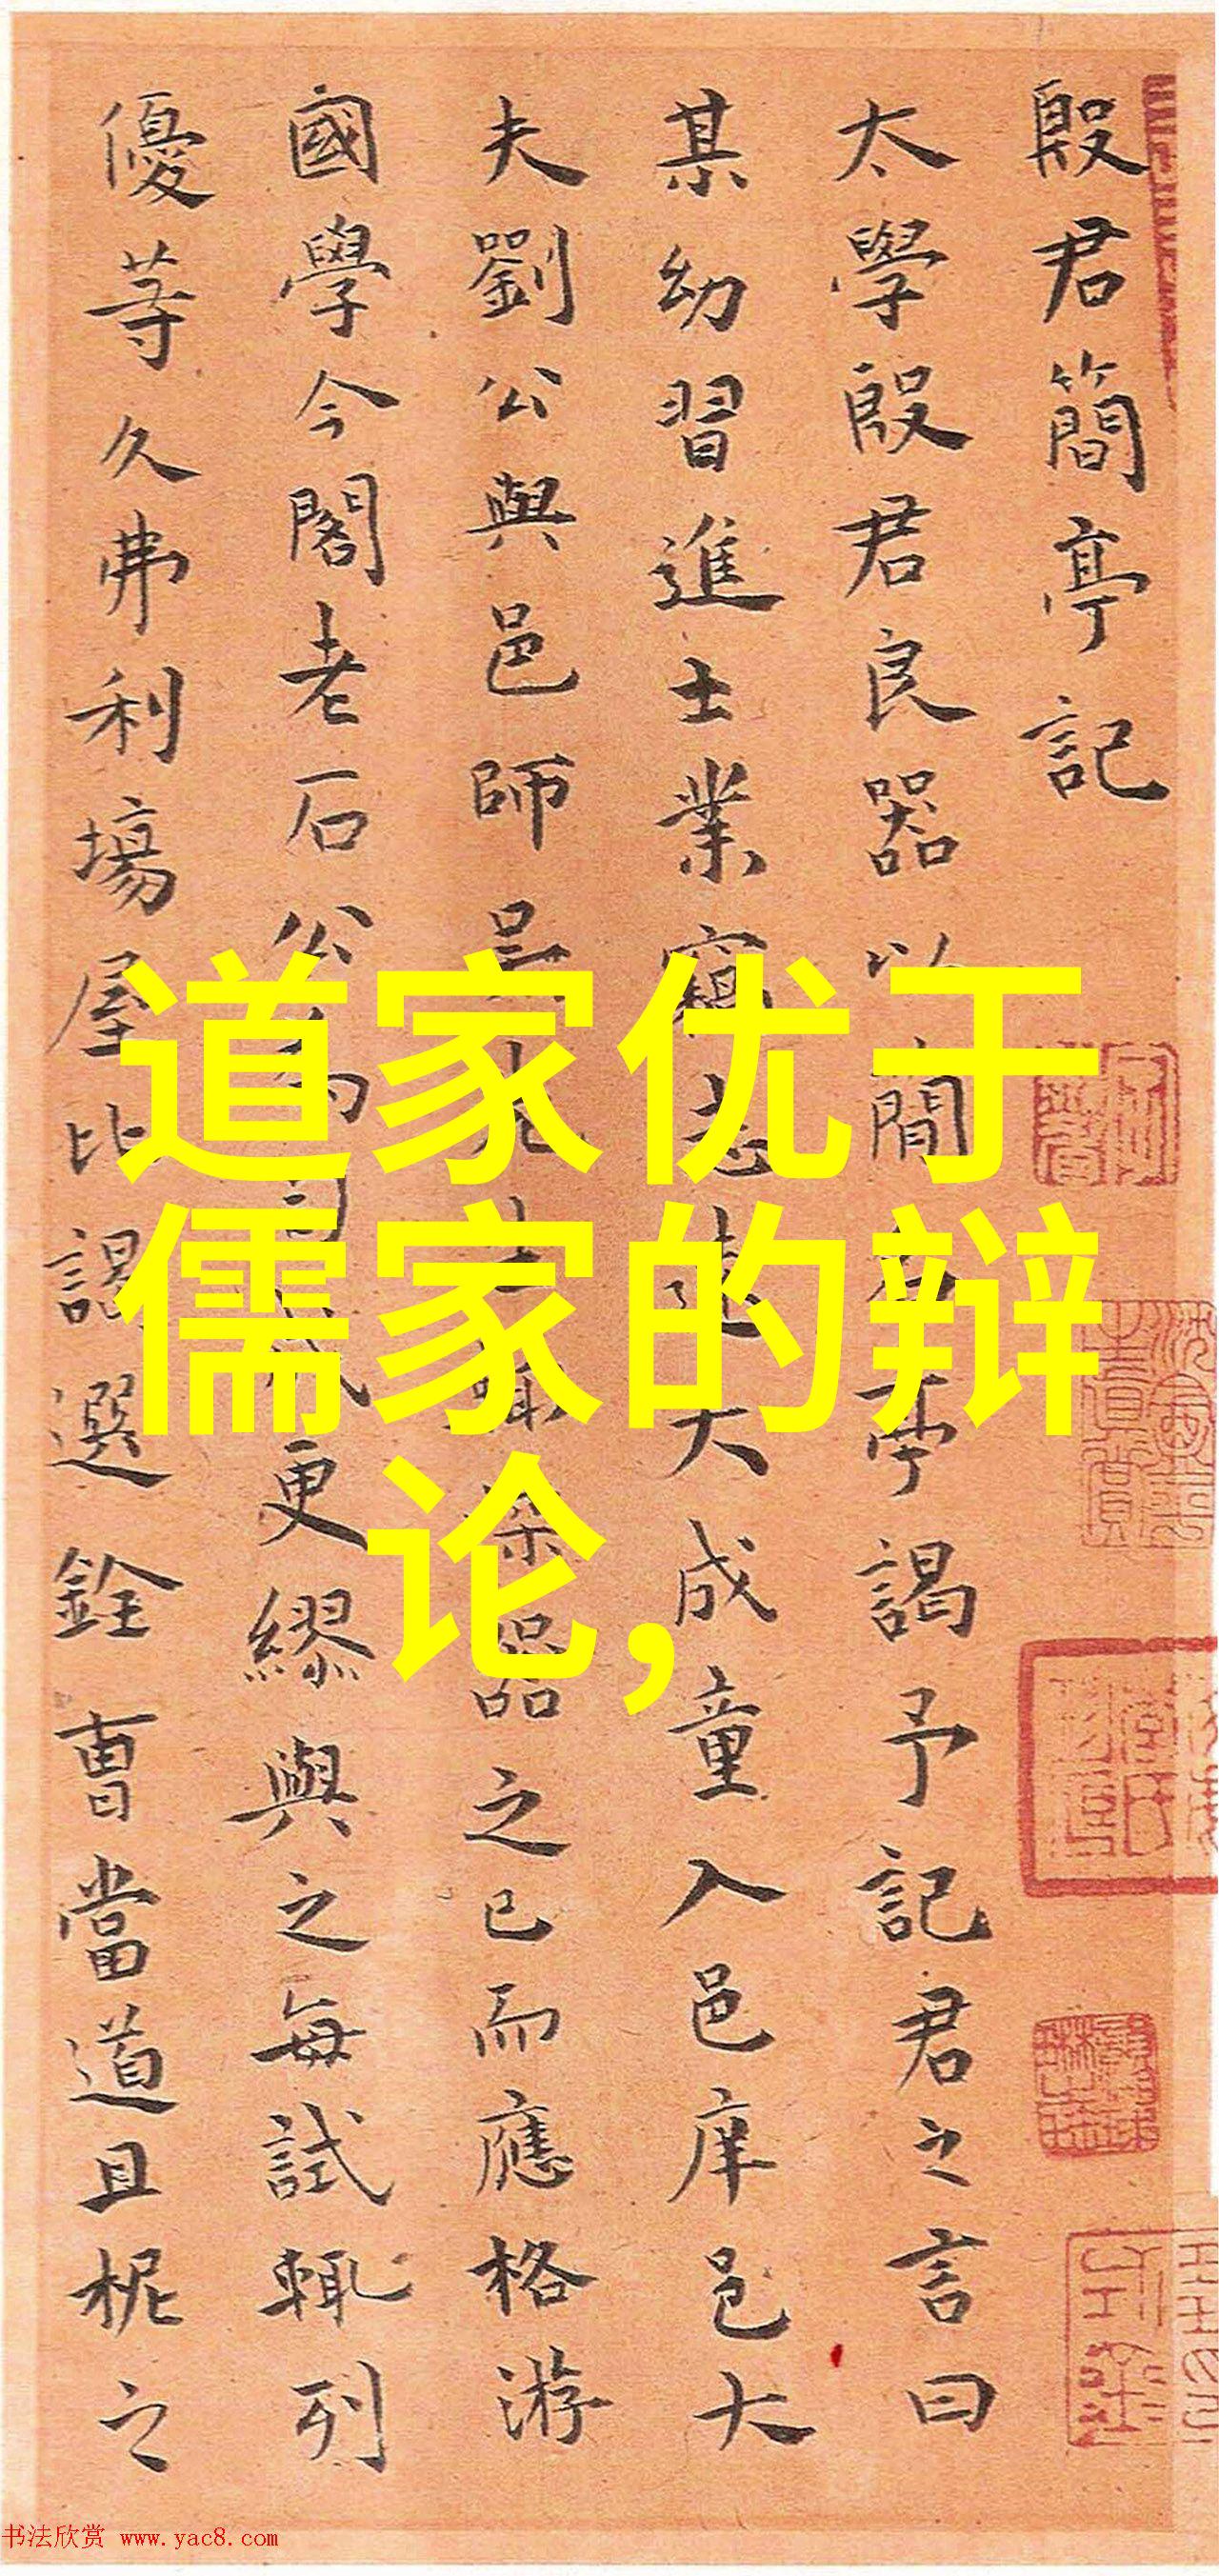 殷君簡亭記
太學殷君良器以簡名亭謁予記君之言曰
某幼習進士業竊志遠大成童入邑庠邑大
夫劉公與邑師吳先生輒深器之已而應格游
國學今閣老石公為司成更繆與之每試輒列
優等久弗利場屋比謁選銓曹當道且柅之
道家优于
儒家的辩
论,
书法欣赏 www.yac8.com